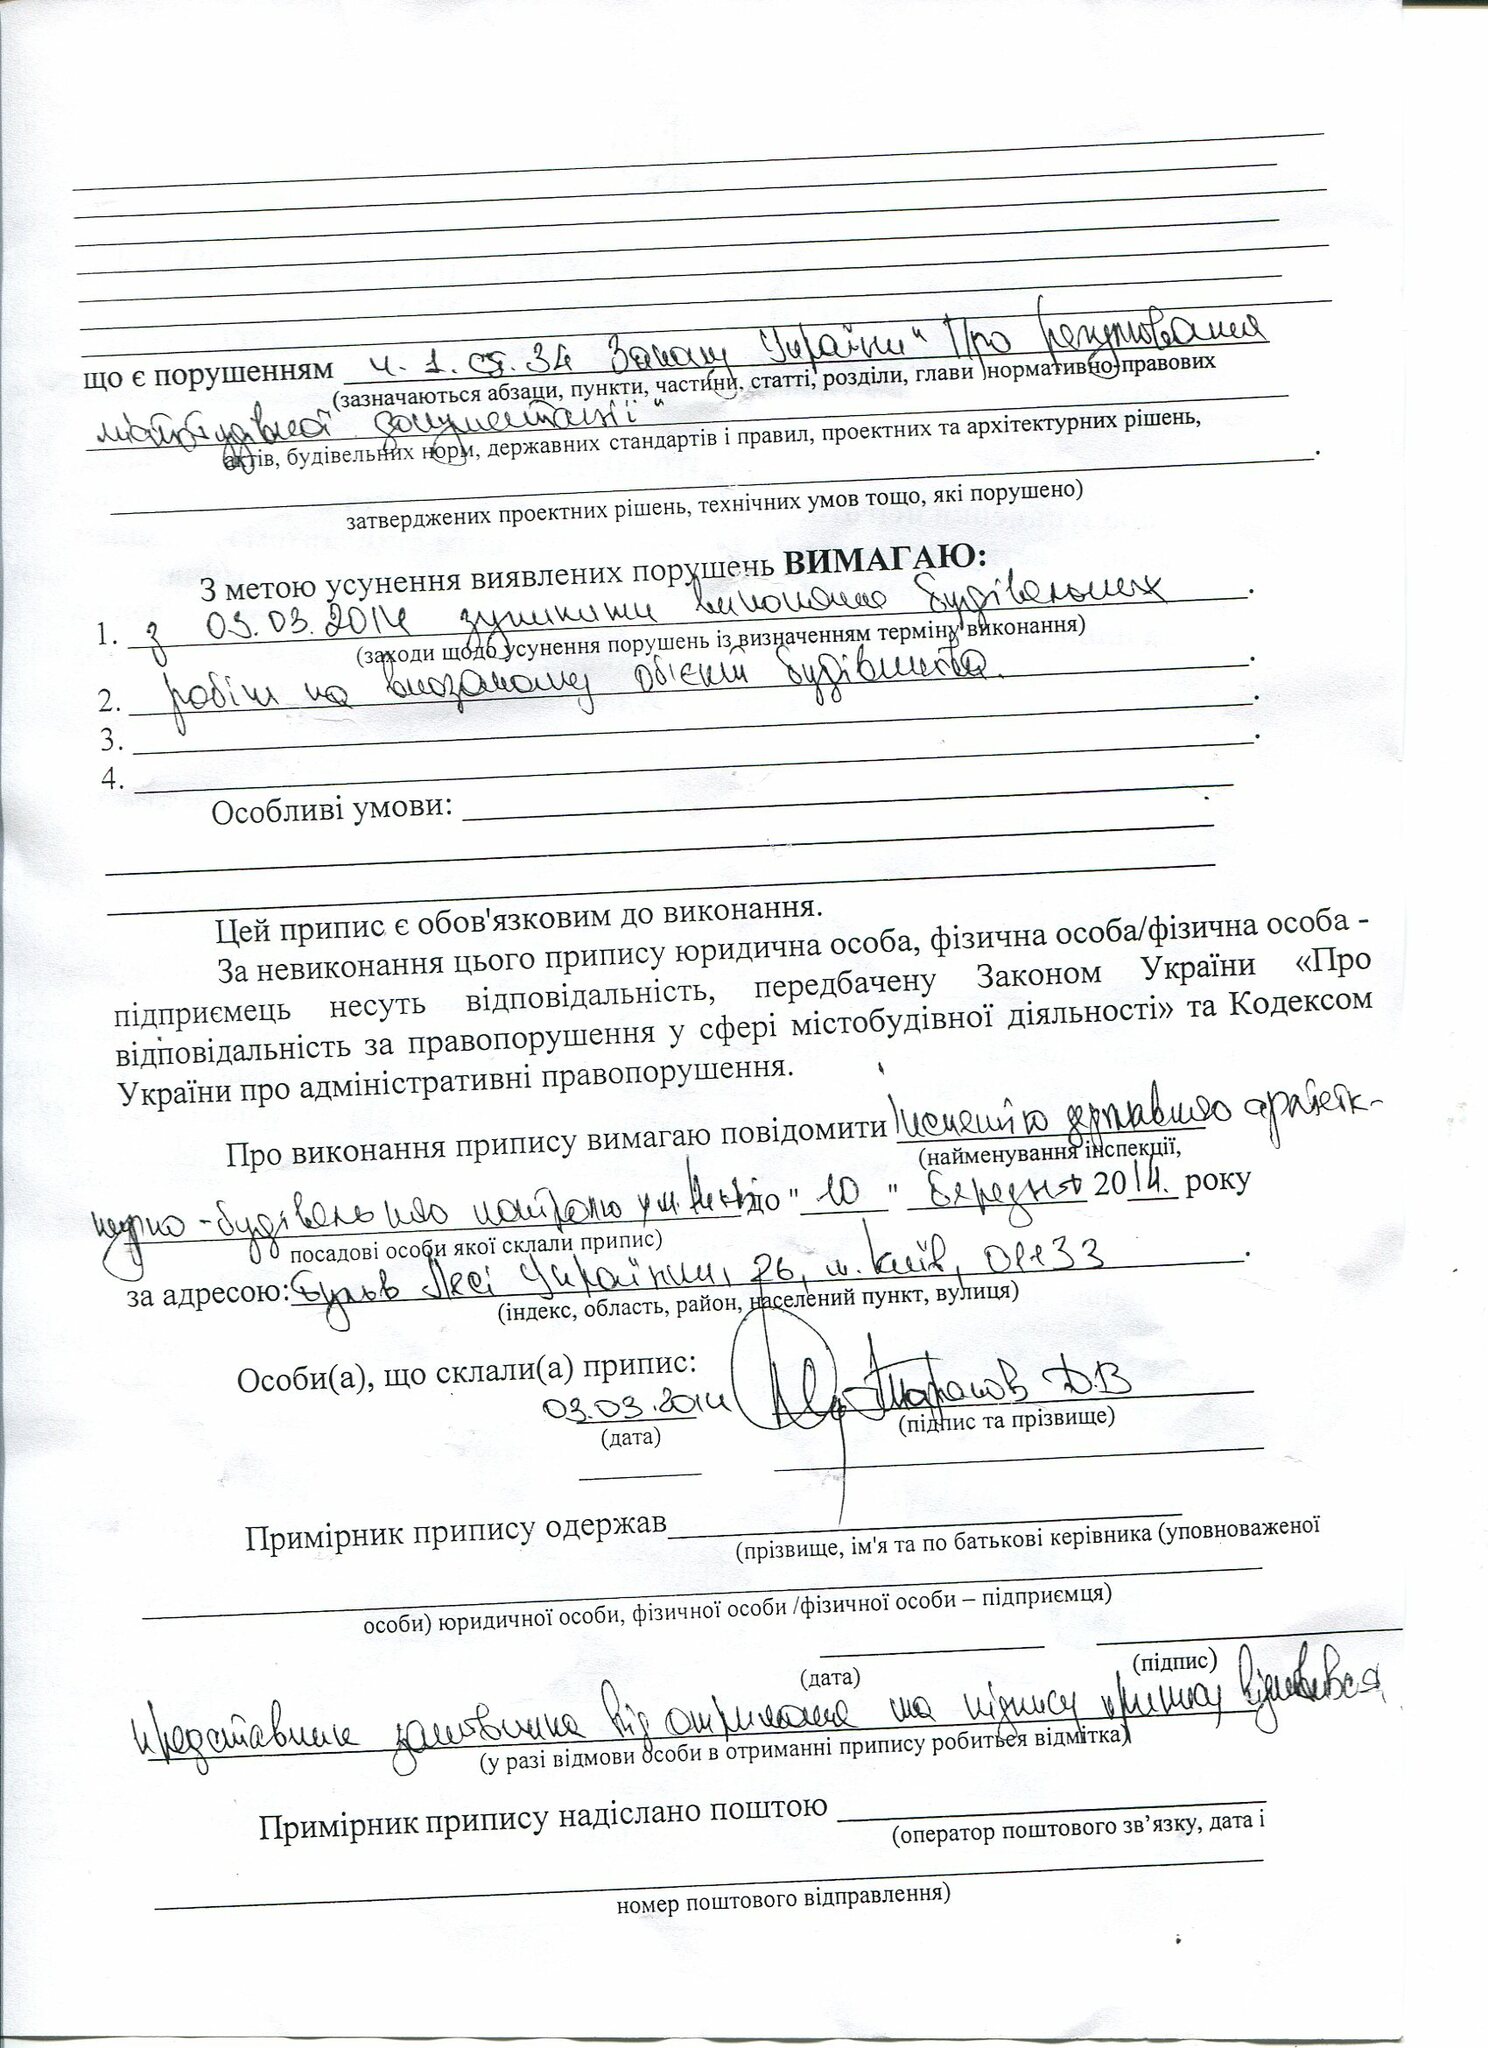 що є порушенням ч. 1. ст. 34 Закону України "Про регулювання
(зазначаються абзаци, пункти, частини, статті, розділи, глави нормативно-правових
містобудівної документації"
актів, будівельних норм, державних стандартів і правил, проектних та архітектурних рішень,
затверджених проектних рішень, технічних умов тощо, які порушено)
З метою усунення виявлених порушень ВИМАГАЮ:
1. з 03.03.2014 зупинити виконання будівельних
(заходи щодо усунення порушень із визначенням терміну виконання)
2. робіт на вказаному об'єкті будівництва.
3.
4.
Особливі умови:
Цей припис є обов'язковим до виконання.
За невиконання цього припису юридична особа, фізична особа/фізична особа -
підприємець несуть відповідальність, передбачену Законом України «Про
відповідальність за правопорушення у сфері містобудівної діяльності» та Кодексом
України про адміністративні правопорушення.
Про виконання припису вимагаю повідомити державного архітек-
(найменування інспекції,
турно-будівельного контролю у м. Києві до "10" березня 2014. року
посадові особи якої склали припис)
за адресою: Бульв Лесі Українки, 26, м. Київ, 01133
(індекс, область, район, населений пункт, вулиця)
Особи(а), що склали(а) припис:
03.03.2014 Тарасов Д.В
(дата) (підпис та прізвище)
Примірник припису одержав
(прізвище, ім'я та по батькові керівника (уповноваженої
особи) юридичної особи, фізичної особи /фізичної особи – підприємця)
(дата) (підпис)
представник замовника від отримання та підпису припису відмовився
(у разі відмови особи в отриманні припису робиться відмітка)
Примірник припису надіслано поштою
(оператор поштового зв’язку, дата і
номер поштового відправлення)